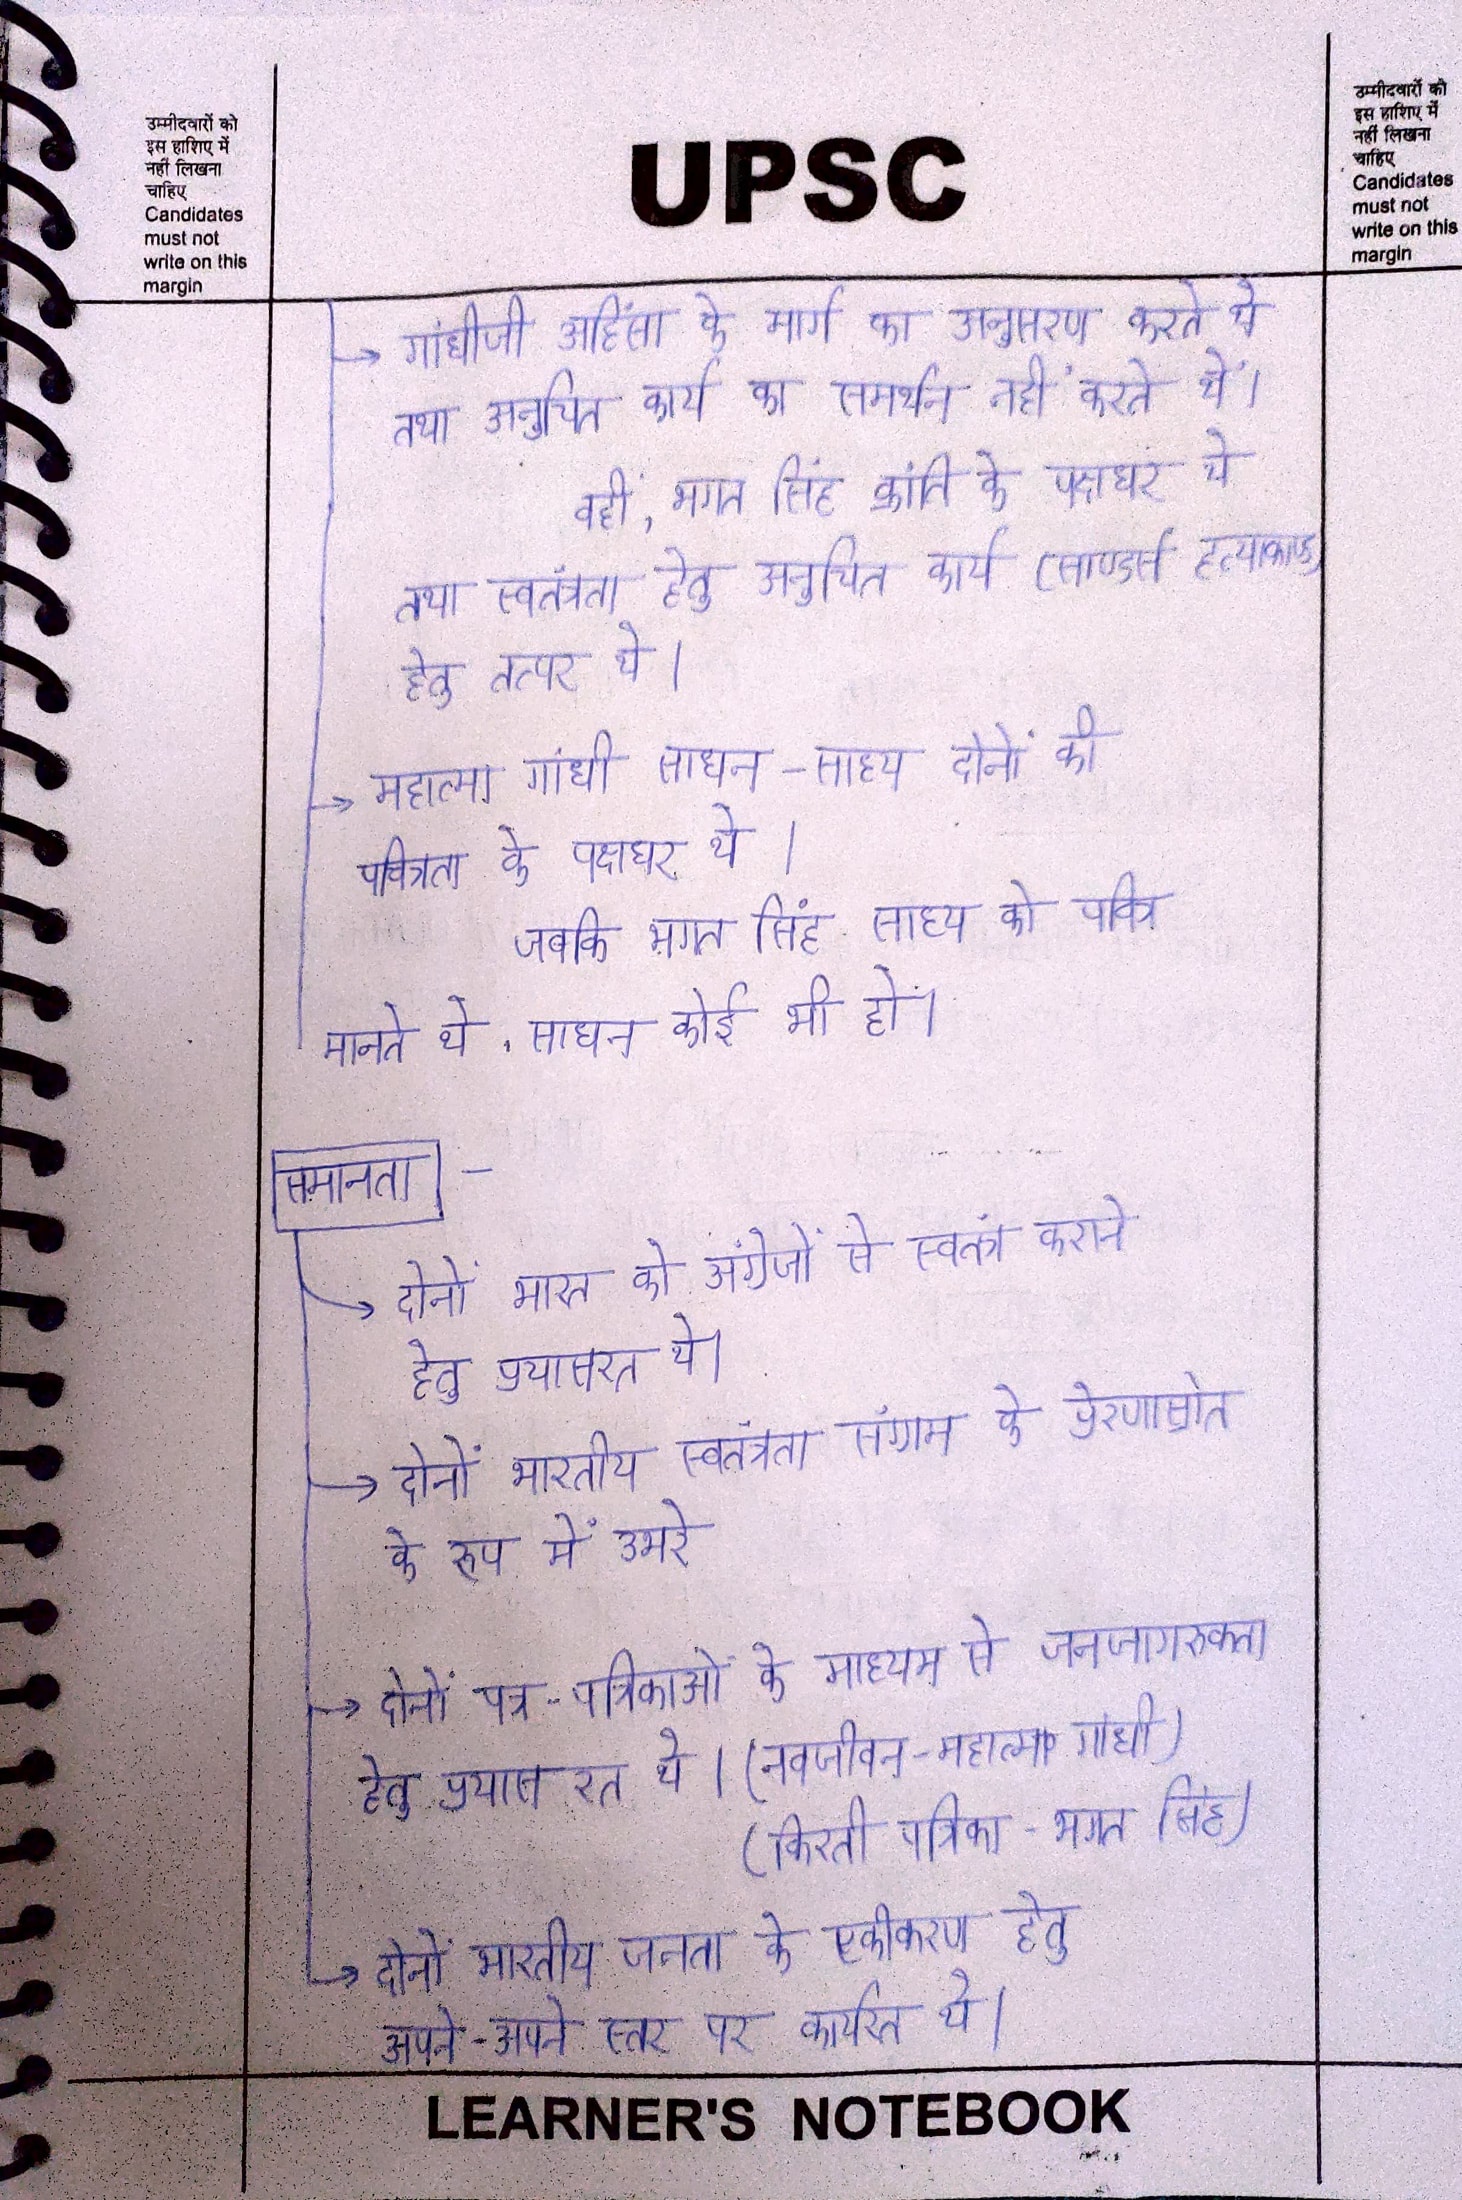 उम्मीदवारों को
इस हाशिए में
नहीं लिखना
चाहिए
Candidates
must not
write on this
margin
UPSC
उम्मीदवारों को
इस हाशिए में
नहीं लिखना
चाहिए
Candidates
must not
write on this
margin
→ गांधीजी अहिंसा के मार्ग का अनुसरण करते थे
तथा अनुचित कार्य का समर्थन नहीं करते थें।
वहीं, भगत सिंह क्रांति के पक्षधर थे
तथा स्वतंत्रता हेतु अनुचित कार्य (साण्डर्स हत्याकाण्ड)
हेतु तत्पर थे।
→ महात्मा गांधी साधन-साध्य दोनों की
पवित्रता के पक्षधर थे।
जबकि भगत सिंह साध्य को पवित्र
मानते थे, साधन कोई भी हो।
समानता -
→ दोनों भारत को अंग्रेजों से स्वतंत्र कराने
हेतु प्रयासरत थे।
→ दोनों भारतीय स्वतंत्रता संग्राम के प्रेरणास्रोत
के रूप में उभरे
→ दोनों पत्र-पत्रिकाओं के माध्यम से जनजागरुकता
हेतु प्रयास रत थे। (नवजीवन-महात्मा गांधी)
(किरती पत्रिका - भगत सिंह)
→ दोनों भारतीय जनता के एकीकरण हेतु
अपने-अपने स्तर पर कार्यरत थे।
LEARNER'S NOTEBOOK